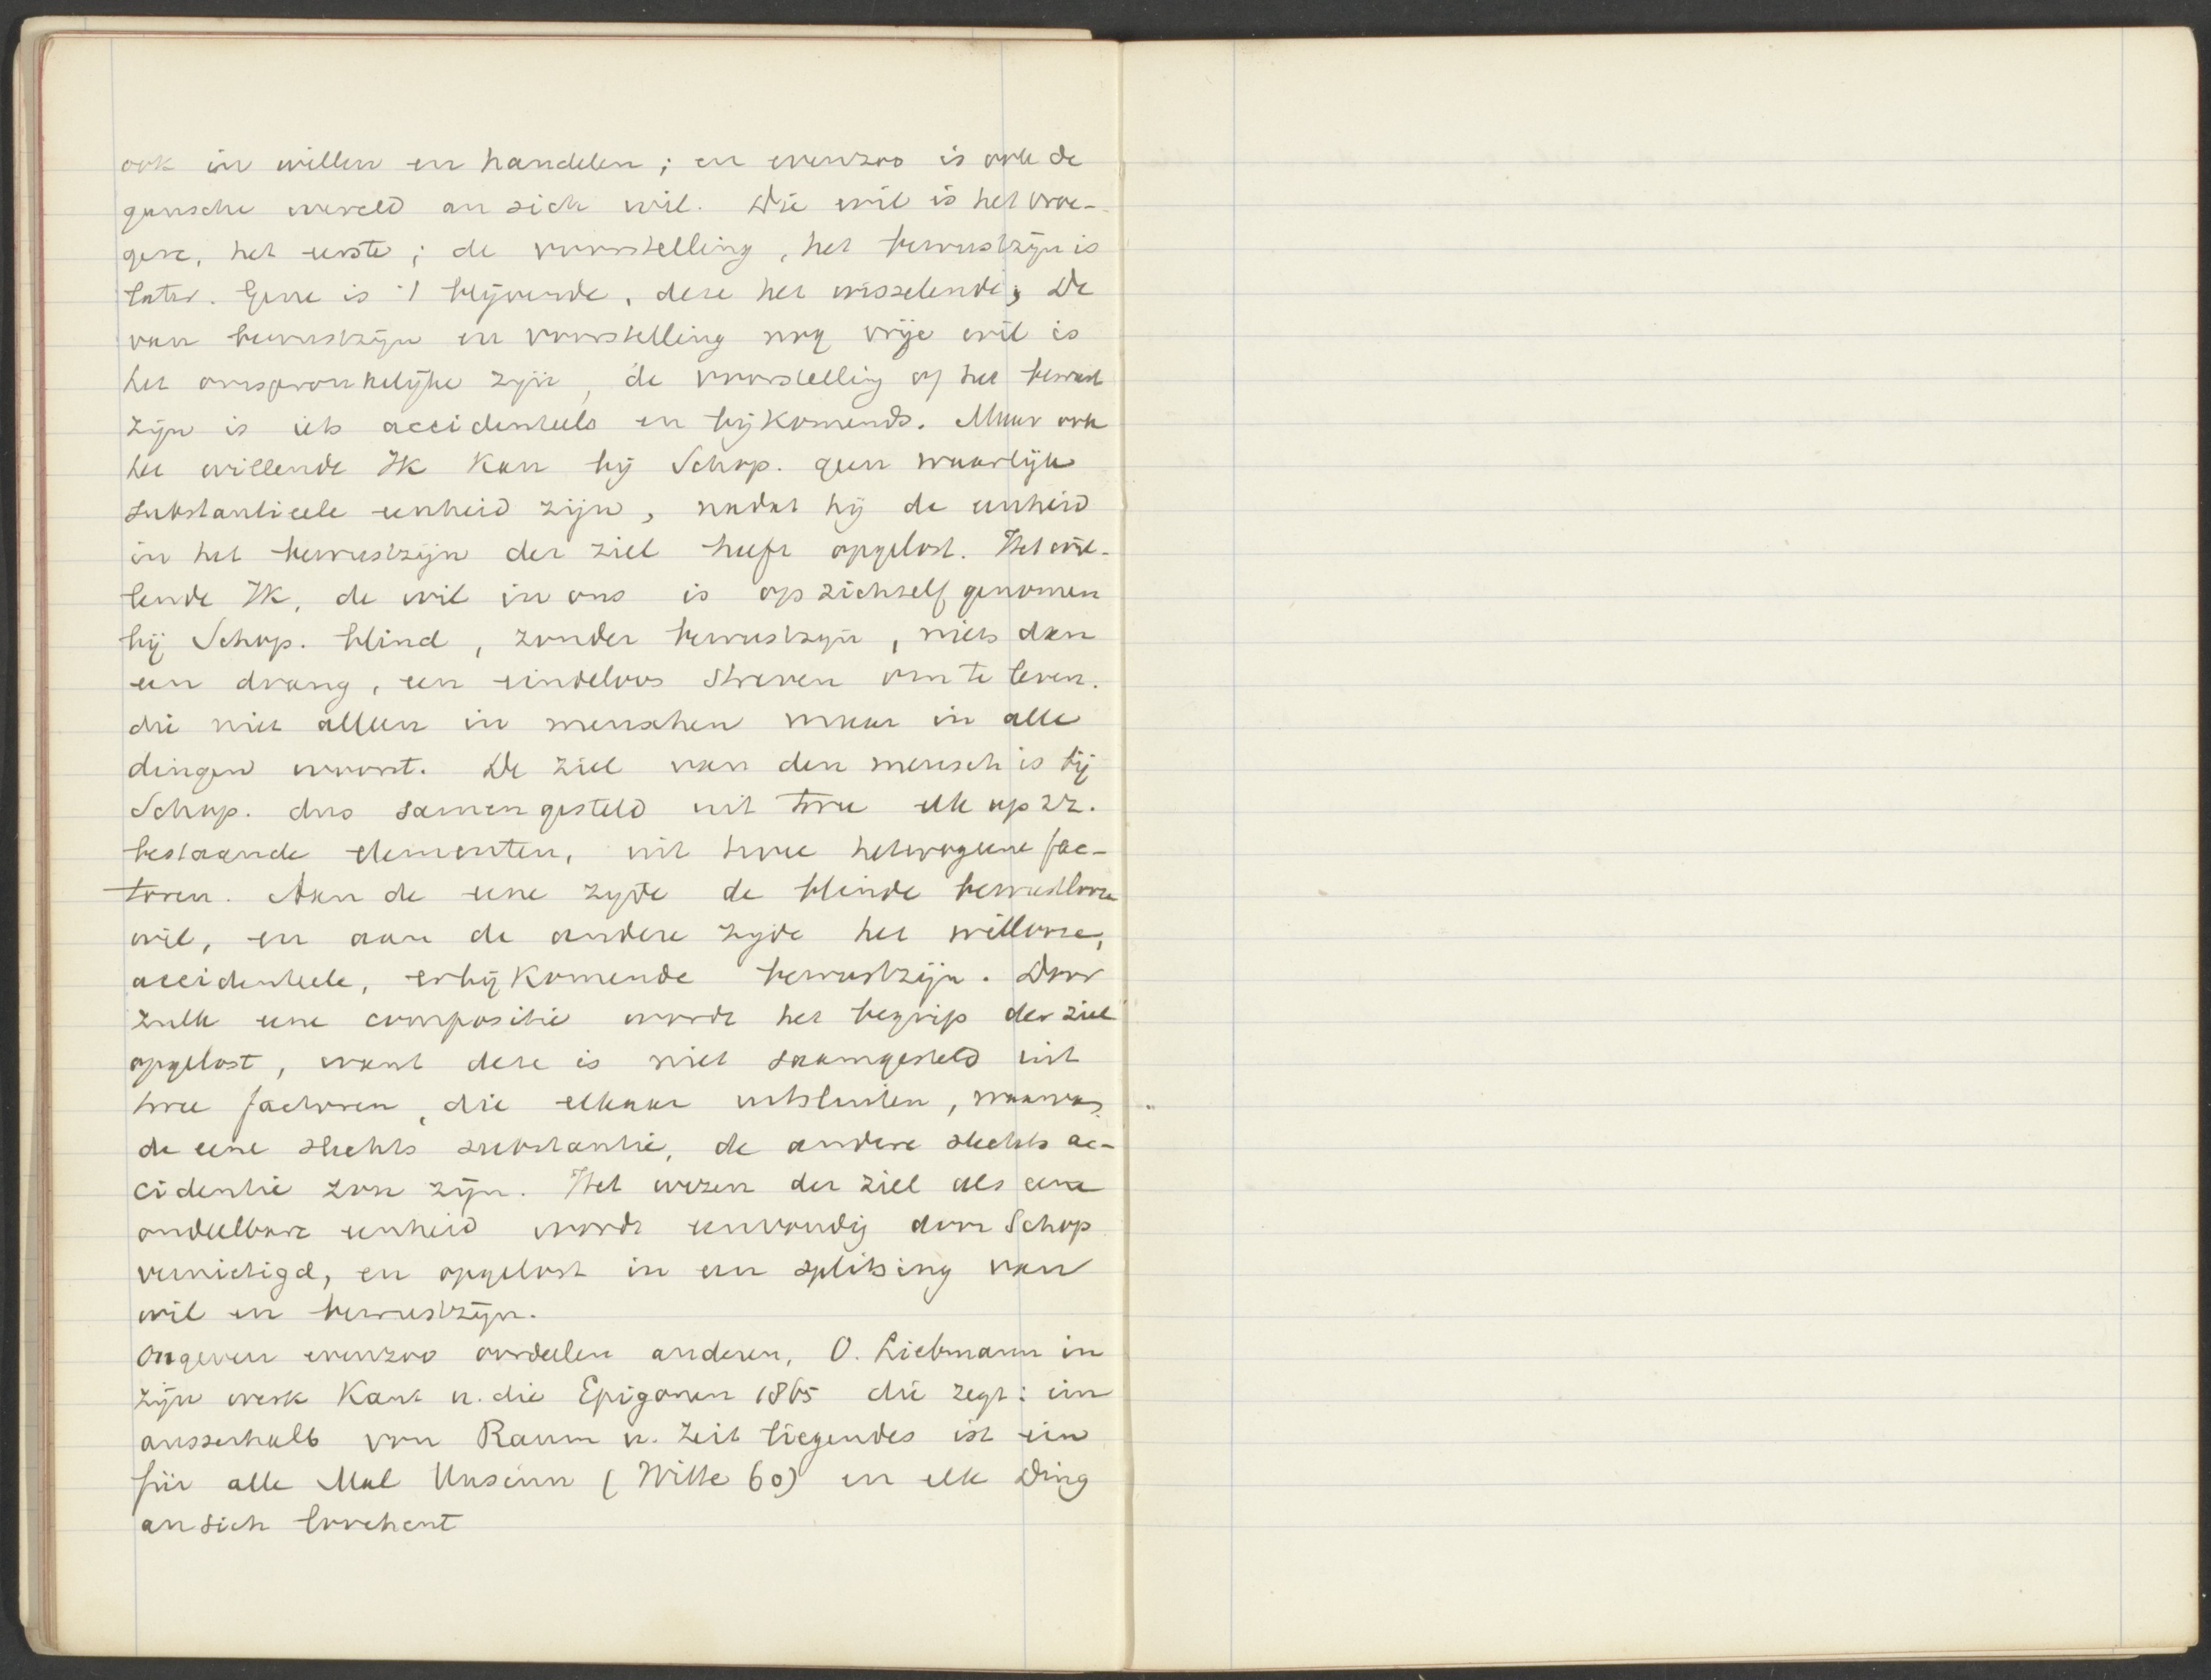 ook in willen en handelen; en evenzoo is ook de
gansche wereld an sich wil. Die wil is het vroe-
gere, het eerste; de voorstelling, het bewustzijn is
later. Gene is 't blijvende, deze het wisselende; De
van bewustzijn en voorstelling nog vrije wil is
het oorspronkelijke zijn, de voorstelling of het bewust
zijn is iets accidenteels en bijkomends. Maar ook
het willende Ik kan bij Schop. geen waarlijk
substantieele eenheid zijn, nadat hij de eenheid
in het bewustzijn der ziel heeft opgelost. Het wil-
lende Ik, de wil in ons is op zichzelf genomen
bij Schop. blind, zonder bewustzijn, niets dan
een drang, een eindeloos streven om te leven.
die niet alleen in menschen maar in alle
dingen woont. De ziel van den mensch is bij
Schop. dus samengesteld uit twee elk op zz.
bestaande elementen, uit twee heterogene fac-
toren. Aan de eene zijde de blinde bewustlooze
wil, en aan de andere zijde het willooze,
accidenteele, erbij komende bewustzijn. Door
zulk eene compositie wordt het begrip der ziel
opgelost, want deze is niet saamgesteld uit
twee factoren, die elkaar uitsluiten, waarvan
de eene slechts substantie, de andere slechts ac-
cidentie zou zijn. Het wezen der ziel als eene
ondeelbare eenheid wordt eenvoudig door Schop
vernietigd, en opgelost in een splitsing van
wil en bewustzijn.
Ongeveer evenzoo oordeelen anderen, O. Liebmann in
zijn werk Kant u. die Epigonen 1865 die zegt: ein
ausserhalb von Raum u. Zeit liegendes ist ein
für alle Mal Unsinn (Witte 60) en elk Ding
an sich loochent